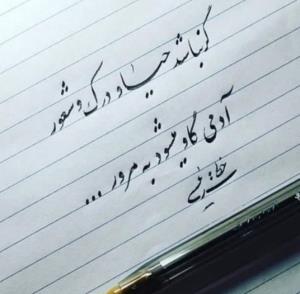 گر نباشد حیا و درک و شعور
آدمی گاو میشود به مرور ...